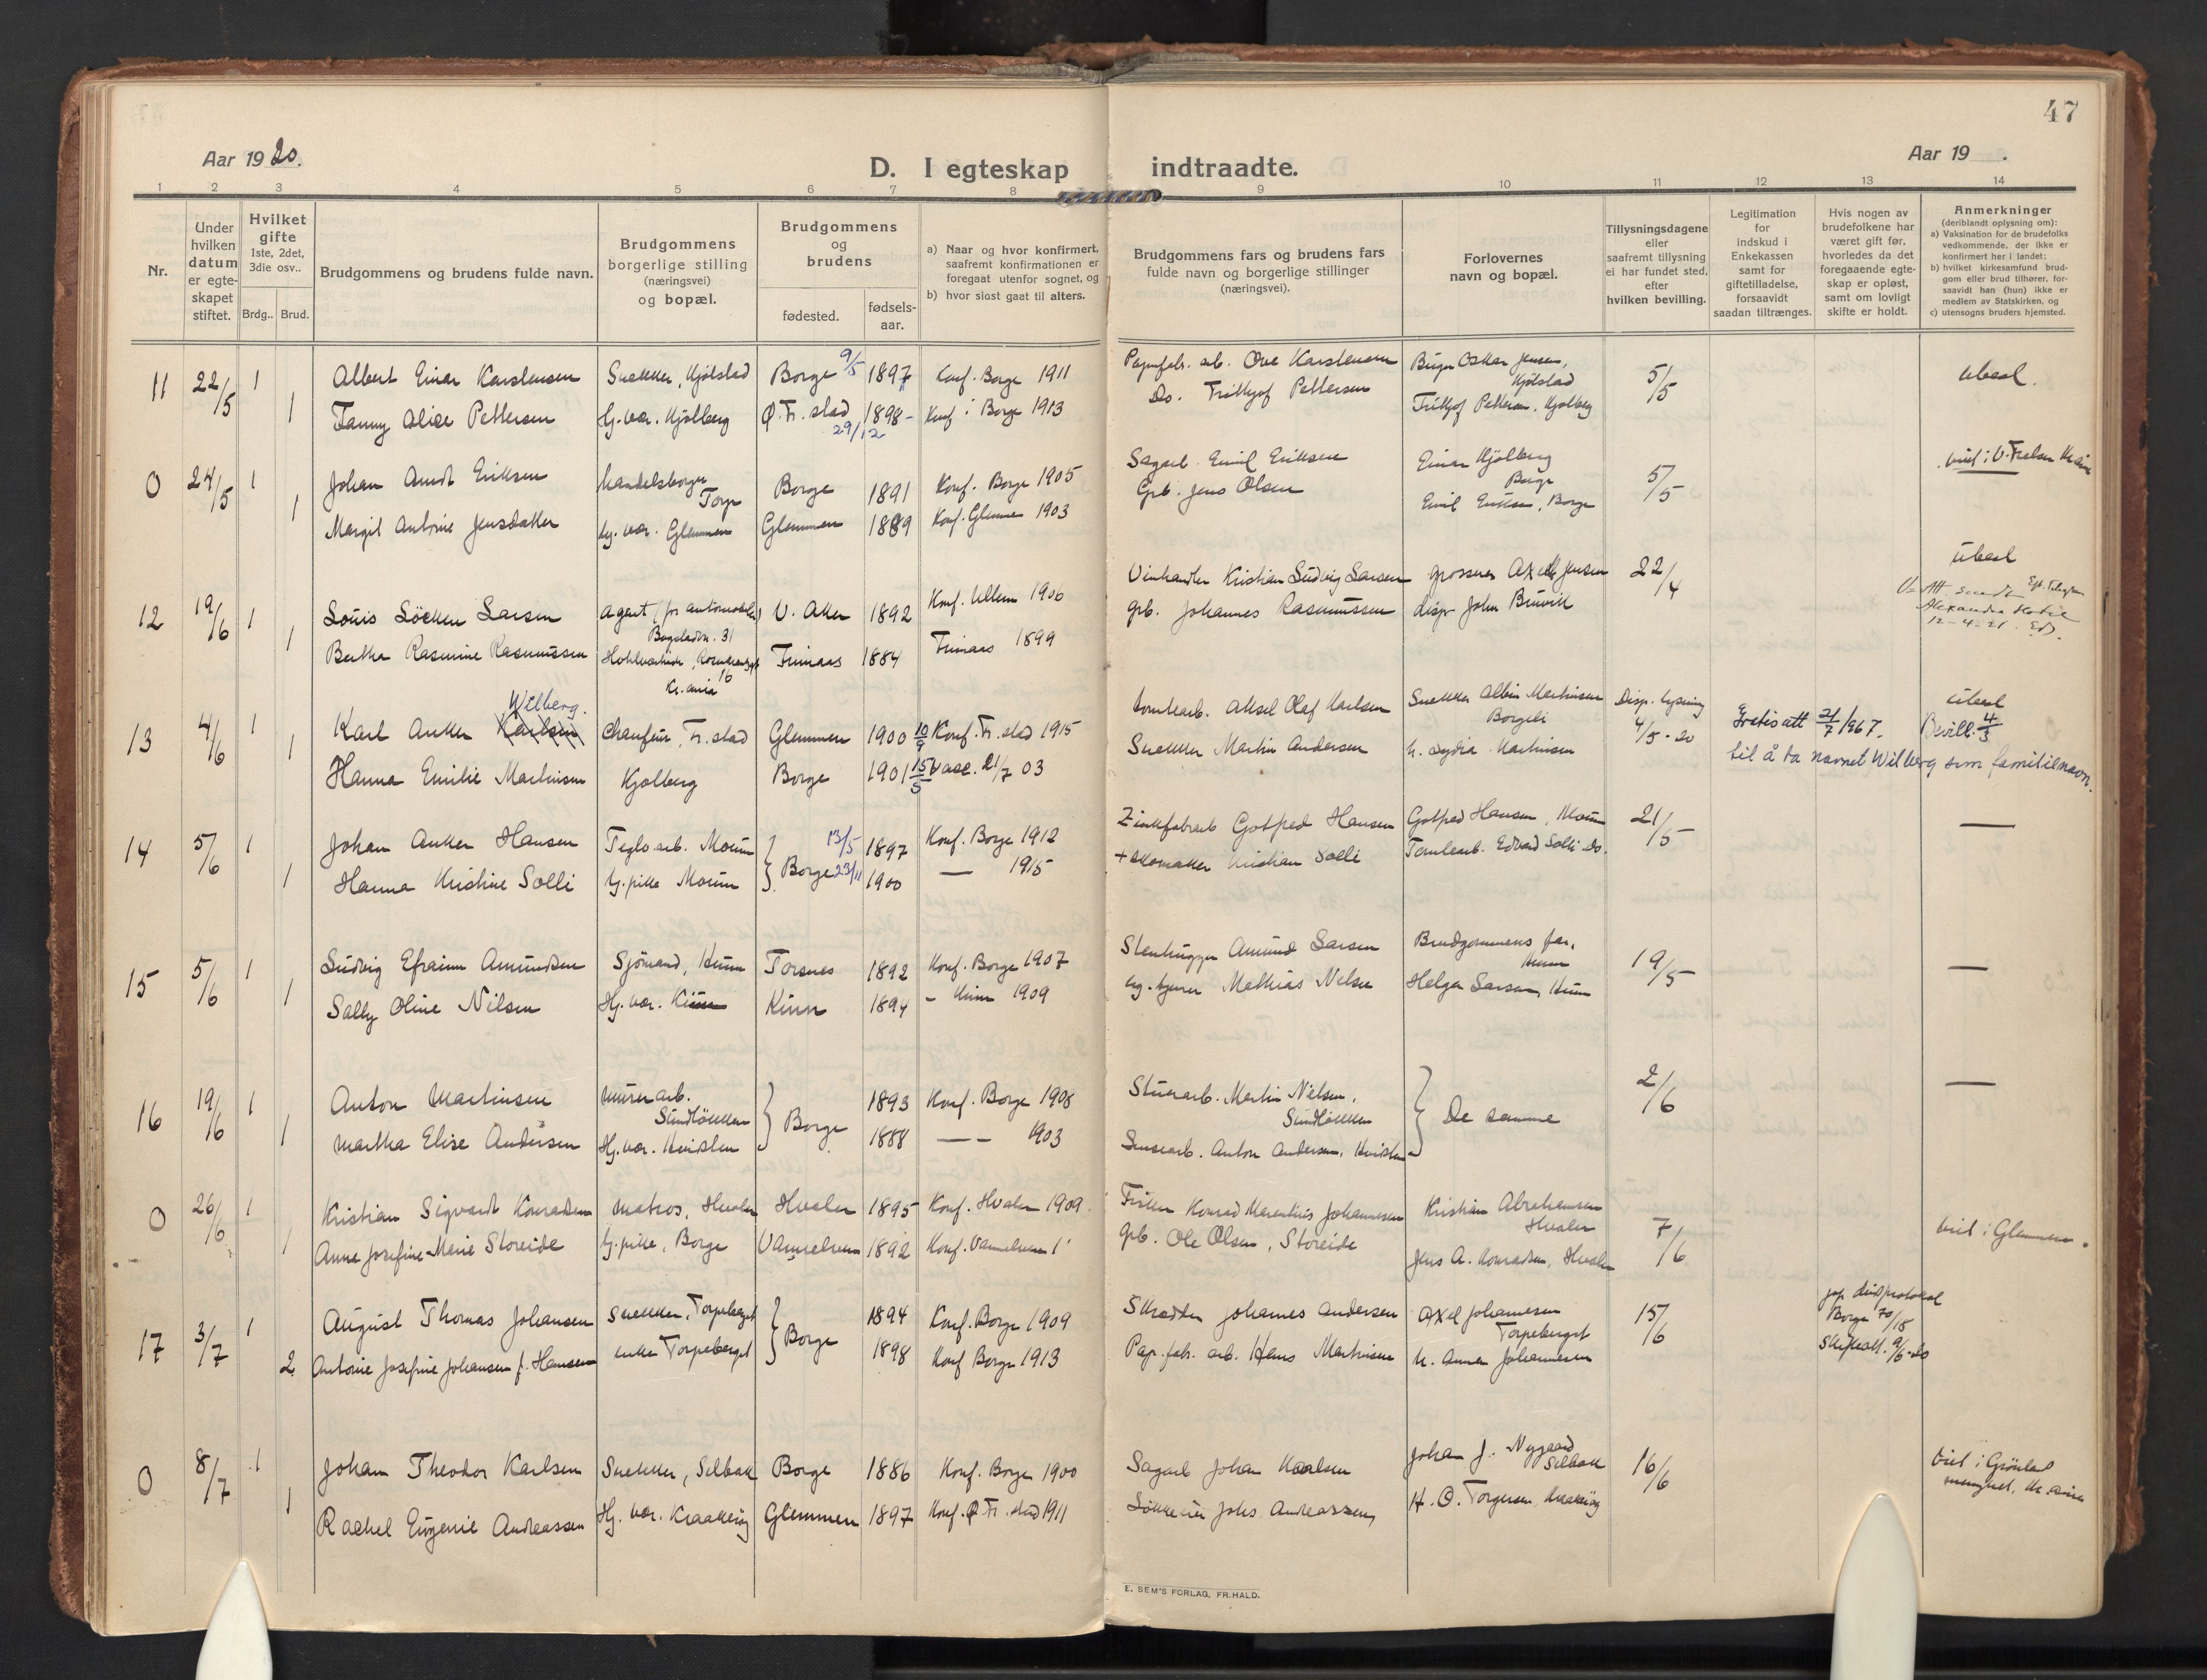 47
Aar 1920.
D. I egteskap indtraadte.
Aar 19 .
1 2 3 4 5 6 7 8 9 10 11 12 13 14
Nr.
Under hvilken datum er egte-skapet stiftet.
Hvilket gifte 1ste, 2det, 3die osv..
Brdg.. Brud.
Brudgommens og brudens fulde navn.
Brudgommens borgerlige stilling (næringsvei) og bopæl.
Brudgommens og brudens
fødested. fødsels-aar.
a) Naar og hvor konfirmert, saafremt konfirmationen er foregaat utenfor sognet, og
b) hvor sidst gaat til alters.
Brudgommens fars og brudens fars fulde navn og borgerlige stillinger (næringsvei).
Forlovernes navn og bopæl.
Tillysningsdagene eller saafremt tillysning ei har fundet sted, efter hvilken bevilling.
Legitimation for indskud i Enkekassen samt for giftetilladelse, forsaavidt saadan tiltrænges.
Hvis nogen av brudefolkene har været gift før, hvorledes da det foregaaende egte-skap er opløst, samt om lovligt skifte er holdt.
Anmerkninger (deriblandt oplysning om):
a) Vaksination for de brudefolks vedkommende, der ikke er konfirmert her i landet;
b) hvilket kirkesamfund brud-gom eller brud tilhører, for-saavidt han (hun) ikke er medlem av Statskirken, og
c) utensogns bruders hjemsted.
11 22/5 1 Albert Einar Karstensen Snekker, Kjölstad Borge 9/5 1897 Konf. Borge 1911 Papirfab. arb. Ove Karstensen Oskar Jensen, Kjölstad 5/5 Ubesl.
1 Fanny Alice Pettersen Hj. vær. Kjölberg Ø. Fr. stad 29/12 1898 Konf. i Borge 1913 Do. Frithjof Pettersen Frithjof Pettersen, Kjølberg
0 24/5 1 Johan Arndt Eriksen Handelsborger Torp Borge 1891 Konf. Borge 1905 Sagarb. Emil Eriksen Einar Kjölberg Borge 5/5
1 Margit Antonie Jensdatter Hj. vær. Glemmen Glemmen 1889 Konf. Glemmen 1903 Grb. Jens Olsen Emil Eriksen, Borge
12 19/6 1 Louis Löcken Larsen Agent (for automobiler) Bogstadvn. 31 V. Aker 1892 Konf. Ullern 1906 Vinhandler Kristian Ludvig Larsen grosserer Axel Jensen 22/4 Ubesl
1 Berthe Rasmine Rasmussen 16 Kr.ania Finnaas 1884 Finnaas 1899 grb. Johannes Rasmussen disp. John Brüvik
Alexandra Hotel 12-4-21.
13 4/6 1 Karl Anker Karlsen Wilberg. Chauffeur, Fr. stad Glemmen 1900 10/9 Konf. Fr. stad 1915 Tomtearb. Aksel Olaf Karlsen Snekker Albin Martinsen Borgeli Disp. lysning 4/5-20 Gratis att 21/7 1967. Ubesl Bevill. 4/3
1 Hanna Emilie Martinsen Kjølberg Borge 1901 15/5 vacc. 21/7 03 Snekker Martin Andersen Lydia Martinsen til å ta navnet Wilberg som familienavn.
14 5/6 1 Johan Anker Hansen Teglv. arb. Moum Borge 13/5 1897 Konf. Borge 1912 Zinkfabrarb Gotfred Hansen Gotfred Hansen, Moum 21/5 —
1 Hanna Kristine Solli Hj. pike Moum 23/11 1900 — 1915 + Skomaker Kristian Solli Tomtearb. Edvard Solli do.
15 5/6 1 Ludvig Efraim Amundsen Sjömand, Huun Torsnes 1892 Konf. Borge 1907 Stenhugger Amund Larsen Brudgommens far, Huun 19/5 —
1 Sally Oline Nilsen Hj. vær. Kinn 1894 - Kinn 1909 Mathias Nilsen Helge Larsen, Huun
16 19/6 1 Anton Martinsen Murerarb. Sundlökken Borge 1893 Konf. Borge 1908 Stuerarb. Martin Nielsen, Sundløkken De samme 2/6 —
1 Martha Elise Andersen Hj. vær. 1888 — — 1903 Anton Andersen,
0 26/6 1 Kristian Sigvart Konradsen Matros, Hvaler Hvaler 1895 Konf. Hvaler 1909. Fisker Konrad Johannesen Kristian Abrahamsen Hvaler 7/6 viet i Glemmen.
1 Anne Josefine Marie Storeide Hj. pike, Borge Vannelven 1892 Konf. Vannelven Grb. Ole Olsen, Storeide Jens A. Konradsen, Hvaler
17 3/7 1 August Thomas Johansen Snekker, Torpeberget Borge 1894 Konf. Borge 1909 Skrædder Johannes Andersen Axel Johannesen Torpeberget 15/6 Borge
2 Antonie Josefine Johansen f. Hansen enke Torpeberget 1898 Konf Borge 1913 Pap. fab. arb. Hans Martinsen Anna Johannesen Skifteatt. 9/6-20
0 8/7 1 Johan Theodor Karlsen Snekker, Selbak Borge 1886 Konf. Borge 1900 Sagarb Johan Karlsen Johan J. Nygaard Selbak 16/6 Viet i Grönland menighet, Kr.ania
1 Rachel Eugenie Andreassen Hj. vær. Kraakeröy Glemmen 1897 Konf. Ø Fr. stad 1911 Johs Andreassen H. O. Torgersen, Kraakeröy
E. SEM'S FORLAG, FR.HALD.